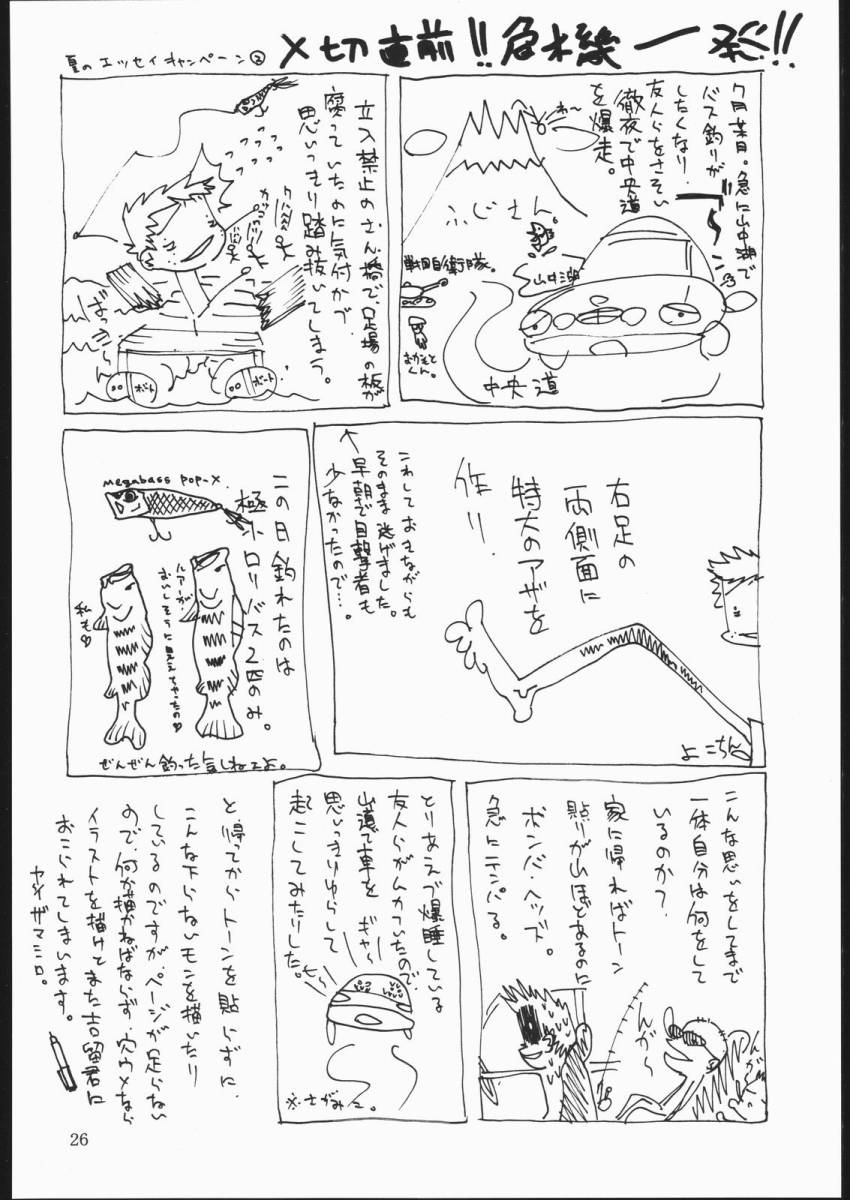 夏のエッセイキャンペーン②
〆切直前!!危機一発!!
7月某日。急に山中湖で
バス釣りが
したくなり、
友人らをさそい
徹夜で中央道
を爆走。
わ〜
ふじさん
山中湖
戦国自衛隊。
おかもと
くん。
中央道
立入禁止のさん橋で、足場の板が
腐っていたのに気付かず
思いっきり踏み抜いてしまう。
ばっきーん
ボート
ボート
右足の
両側面に
特大のアザを
作り、
これしておきながらも
そのまま逃げました。
早朝で目撃者も
少なかったので…。
よこちん
この日釣れたのは
極小ロリバス2匹のみ。
megabass POP-X
ルアーが
おいしそうに見えちゃったの♡
私も♡
ぜんぜん釣った気しねーよ。
こんな思いをしてまで
一体自分は何をして
いるのか?
家に帰ればトーン
貼りが山ほどあるのに
ボンバヘッズ。
急にテンパる。
んが〜
とりあえず爆睡している
友人らがムカついたので
山道で車を ギャー
思いっきりゆらして
起こしてみたりした。
※さがみこ。
と、帰ってからトーンを貼らずに、
こんな下らないモンを描いたり
しているのですが、ページが足らない
ので、何か描かねばならず、穴ウメなら
イラストを描けとまた吉留君に
おこられてしまいます。
ヤノザマミロ。
26